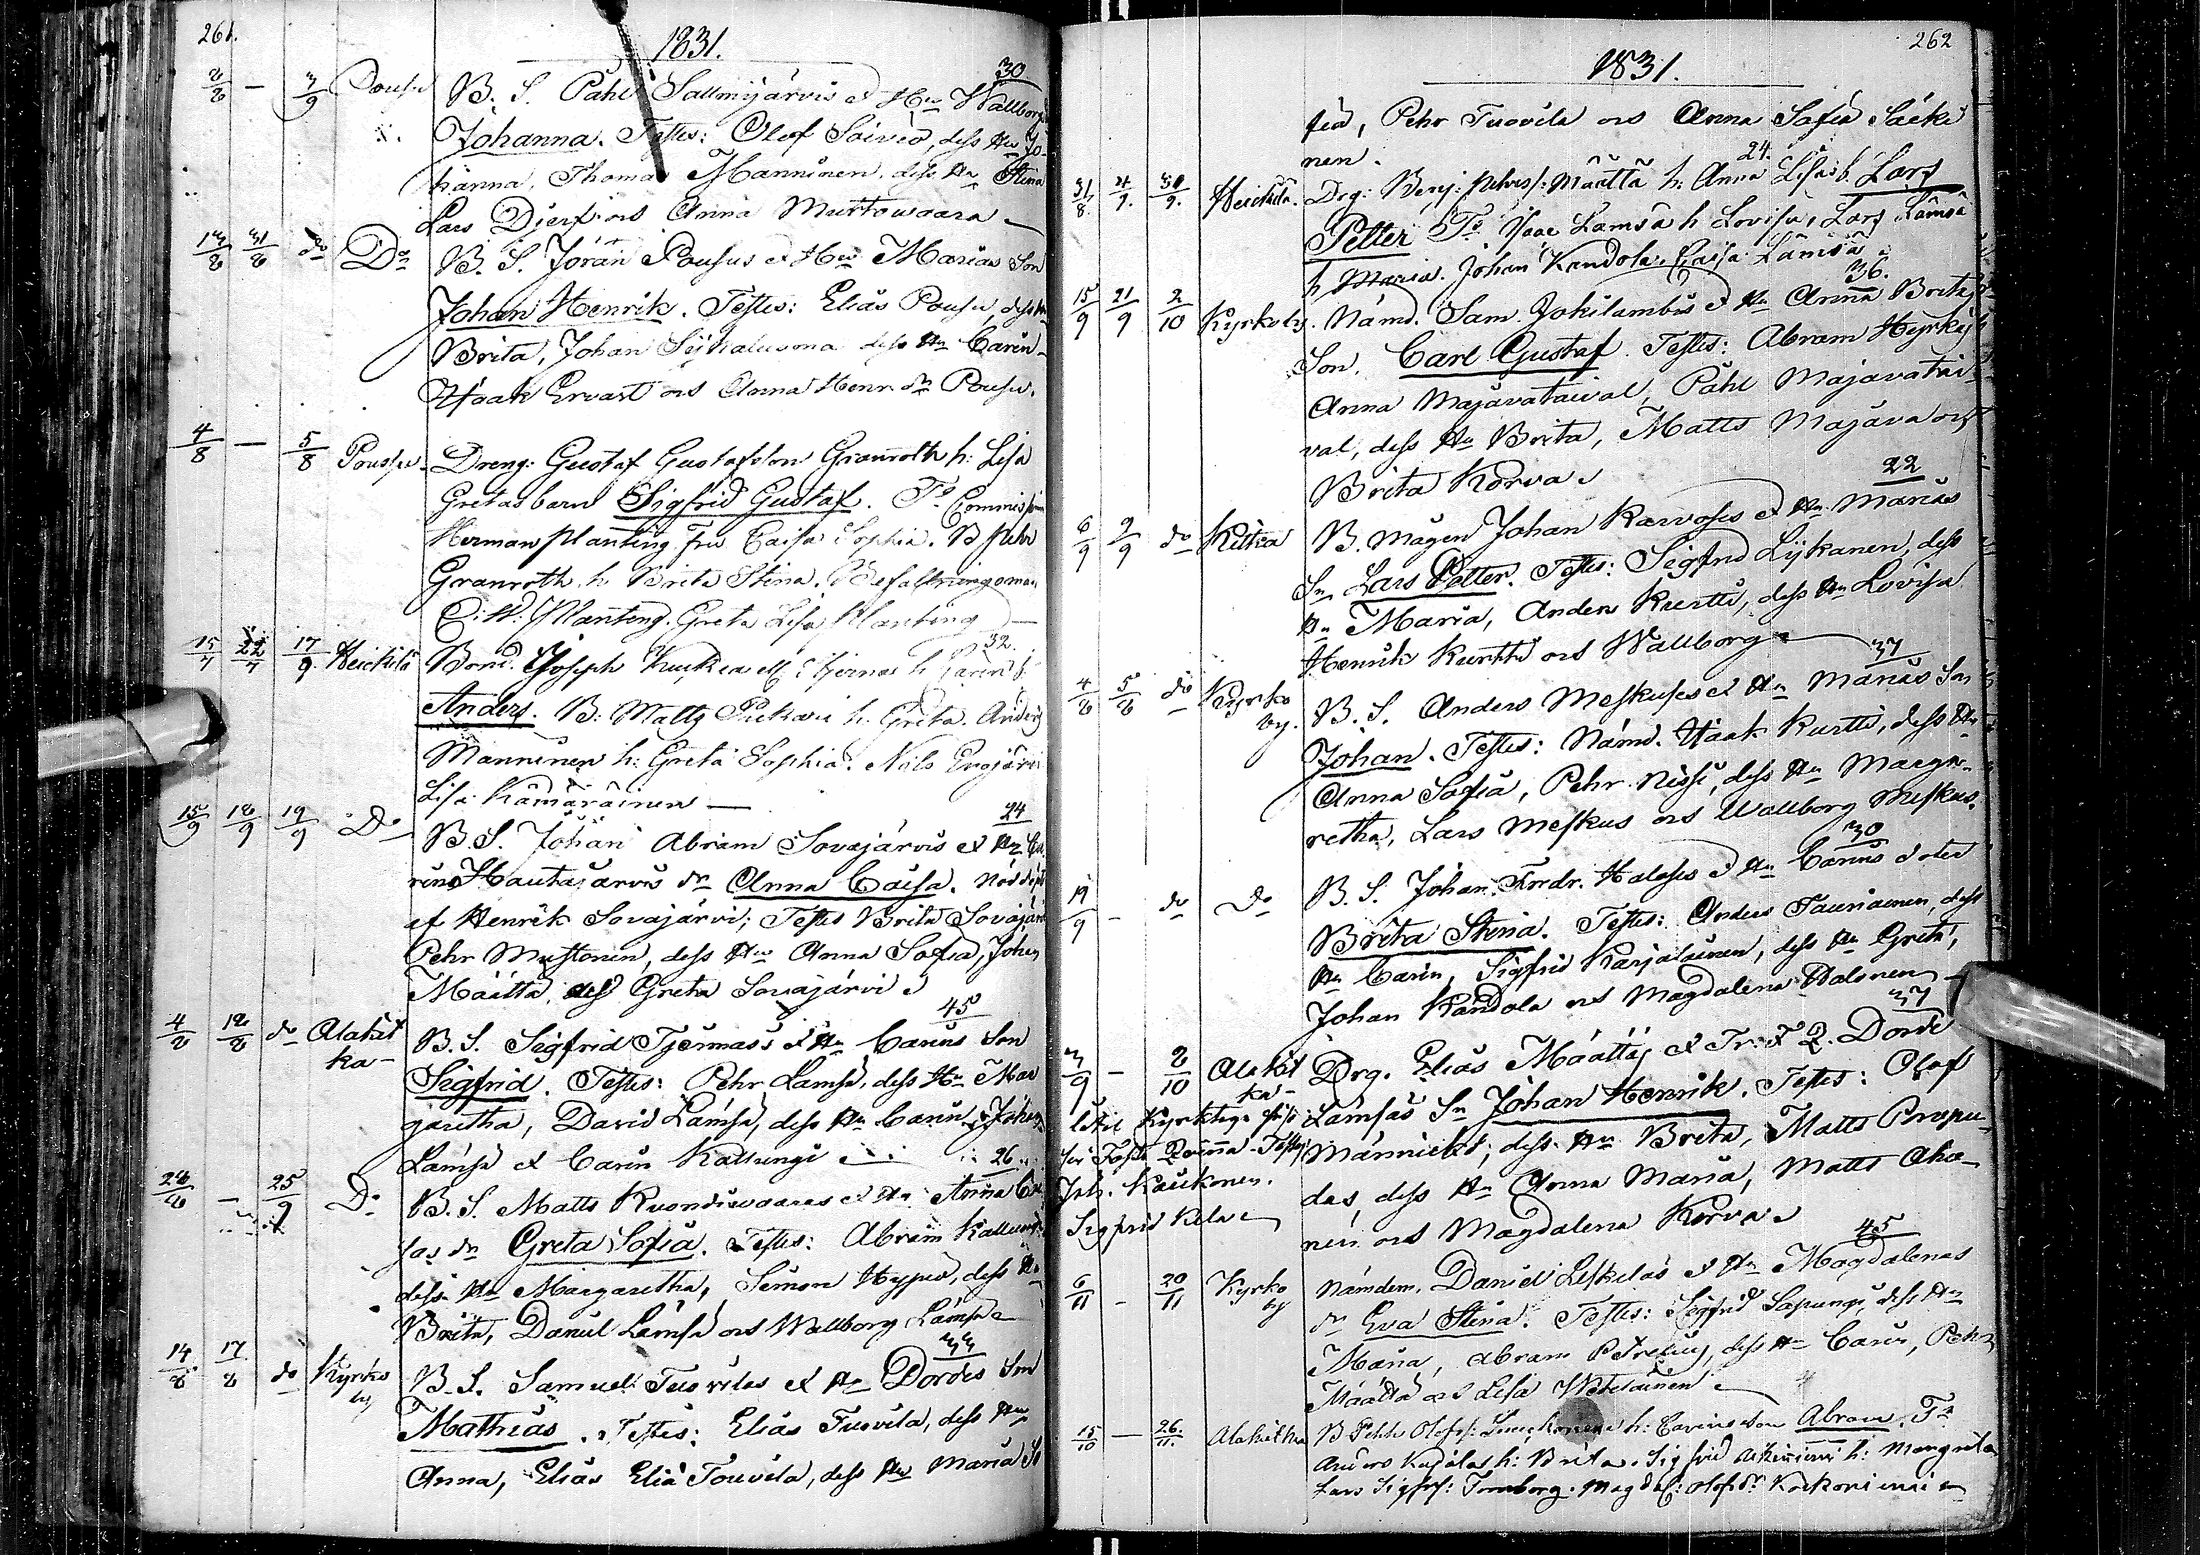 261.
1831.
2/8 — 3/9 Pousu B. S. Påhl Sallmijärvis & Hu Wallborgs 30
Johanna. Testes: Olof Soivio, dess Hu Jo-
hanna, Thomas Manninen, dess Hu Stina
Lars Djerf os Anna Murtowaara
13/8 31/8 do Do B. S. Jöran Pousus & Hus Marias Son
Johan Henrik. Testes: Elias Pousu, dess Hu
Brita, Johan dess Hu Carin
Isaak Ervast os Anna Henr. dr Pousu.
4/8 — 5/8 Pousu Dreng: Gustaf Gustafsson Granroth h: Lisa
Gretas barn Sigfrid Gustaf. Ts Commiss
Herman Planting fru Caisa Sophia. B Pehr
Granroth h. Brita Stina. Befallningsman
C: W: Planting. Greta Lisa Planting
15/7 22/7 17/9. Heickilä Bond. Joseph h Carin 32.
Anders. B: Matts h. Greta. Anders
Manninen h: Greta Sophia. Nils
Lisa Kämäräinen —
15/9 18/9 19/9 Do B. S. Johan Abram Sovajärvis & Hu Ca- 24
rins Hautajärvis dr Anna Caisa. Nöddöpt
af Henrik Sovajärvi; Testes Brita Sovajärvi
Pehr Mustonen, dess Hu Anna Sofia, Johan
Määttä, dess Greta Sovajärvi
4/8 18/8 do Alakit
ka- B. S. Sigfrid Tjernass & Hu Carins Son 45
Sigfrid. Testes: Pehr Lämsä, dess Hu Mar
garetha, David Lämsä, dess Hu Carin, Johan
Lämsä & Carin Kallungi
28/8 — 25/9 Do B. S. Matts & Hu Anna Cai 26
sas dr Greta Sofia. Testes: Abram Kallungi
dess Hu Margaretha, Simon Hyppö, dess Hu
Brita, Daniel Lämsä os Wallborg Lämsä
14/8 17/8 do Kyrko
by B. S. Samuel Tuovilas & Hu Dordes Son 33
Mathias. Testes: Elias Tuovila, dess Hu
Anna, Elias Elia Touvila, dess Hu Maria So
262
1831.
fia, Pehr Tuovila os Anna Safia Säcki
nen.
31/8. 4/9. 30/9. Heickilä. Drg: Benj: Pehrss: Määttä h: Anna Lisas b. Lars 24.
Petter Ts Isaac Lämsä h Lovisa, Lars Lämsä
h Maria. Johan Kandola. Caisa Lämsä
15/9 21/9 2/10 Kyrkoby. Nämd. Sam. Jokilambis & Hu Anna Britas 36.
Son. Carl Gustaf. Testes: Abram Hyrkäs
Anna Majavataival, Påhl Majavatai-
val, dess Hu Brita, Matts Majava os
Brita Korva
6/9 9/9 do Kitka B. Mågen Johan Karvosses & Hu Marias 22
Sn Lars Petter. Testes: Sigfrid Lijkanen, dess
Hu Maria, Anders Kurtti, dess Hu Lovisa
Henrik Kurtti os Wallborg
4/8 5/8 do Kyrko
by. B. S. Anders Meskuses & Hu Marias Son 37
Johan. Testes: Nämd. Isaak Kurtti, dess Hu
Anna Safia, Pehr Nissi, dess Hu Marga-
retha, Lars Meskus os Wallborg Meskus.
19/9 — do Do B. S. Johan Fredr. Haloses & Hu Carins doter 30
Brita Stina. Testes: Anders Tauriainen, dess
Hu Carin, Sigfrid Karjalainen, dess Hu Greta,
Johan Kandola os Magdalena Halonen
3/9 — 8/10 Alakit
ka- Drg. Elias Määttäs & Tr: F. Q. Dorde 37
Lämsäs Sn Johan Henrik. Testes: Olof
Männickö, dess Hu Brita, Matts Prupu-
das, dess Hu Anna Maria, Matts Aka-
nen os Magdalena Korva
Joh. Kaickonen.
Sigfrid Kela
6/11 — 20/11 Kyrko
by Nämdem. Daniel Leskeläs & Hu Magdalenas 45
dr Eva Stina. Testes: Sigfrid Lapungi, dess Hu
Maria, Abram Petreius, dess Hu Carin, Pehr
Määttä os Lisa
15/10 — 26./11. Alakitka B Pehr Olofss: h: Carins son Abram. Ts
Anders h: Brita. Sigfrid h: Margreta
Lars Sigfrs: Tornberg. Magdal: Olofsdr